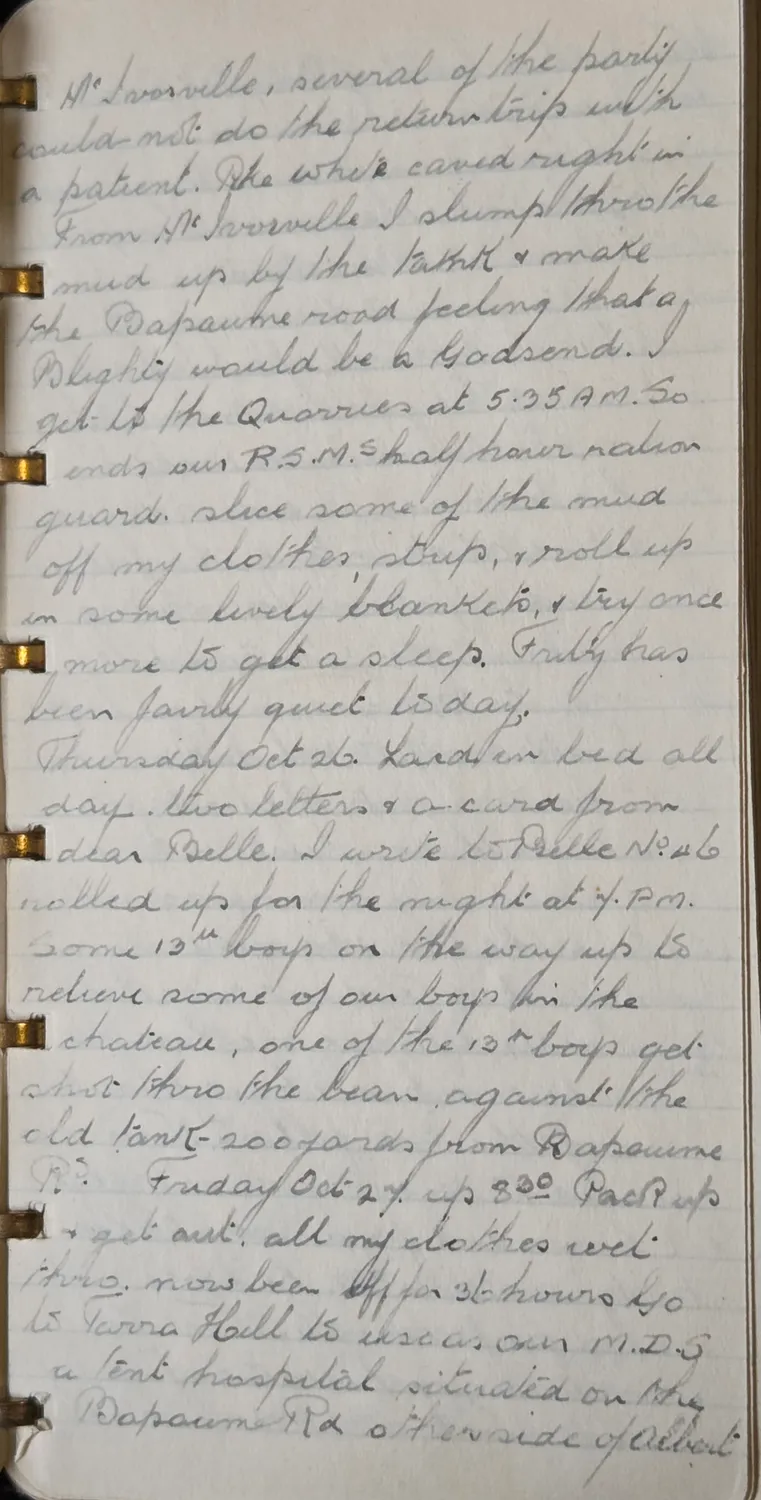 Mc Ivorville, several of the party
could not do the return trip with
a patient. The white caved right in
From Mc Ivorville I slump thro the
mud up by the tank & make
the Bapaume road feeling that a
Blighty would be a Godsend. I
get to the Quarries at 5.35 AM. So
ends our R.S.M.s half hour ration
guard. slice some of the mud
off my clothes, strip, & roll up
in some lively blankets, & try once
more to get a sleep. Fritz has
been fairly quiet to day.
Thursday Oct 26. Laid in bed all
day. two letters & a card from
dear Belle. I write to Belle No. 46
rolled up for the night at 7. PM.
Some 13th boys on the way up to
relieve some of our boys in the
chateau, one of the 13th boys get
shot thro the bean against the
old tank 200 yards from Bapaume
Rd. Friday Oct 27. up 8 30 Pack up
& get out. all my clothes wet
thro. now been off for 36 hours Go
to Tarra Hill to use as our M.D.S
a tent hospital situated on the
Bapaume Rd other side of Albert